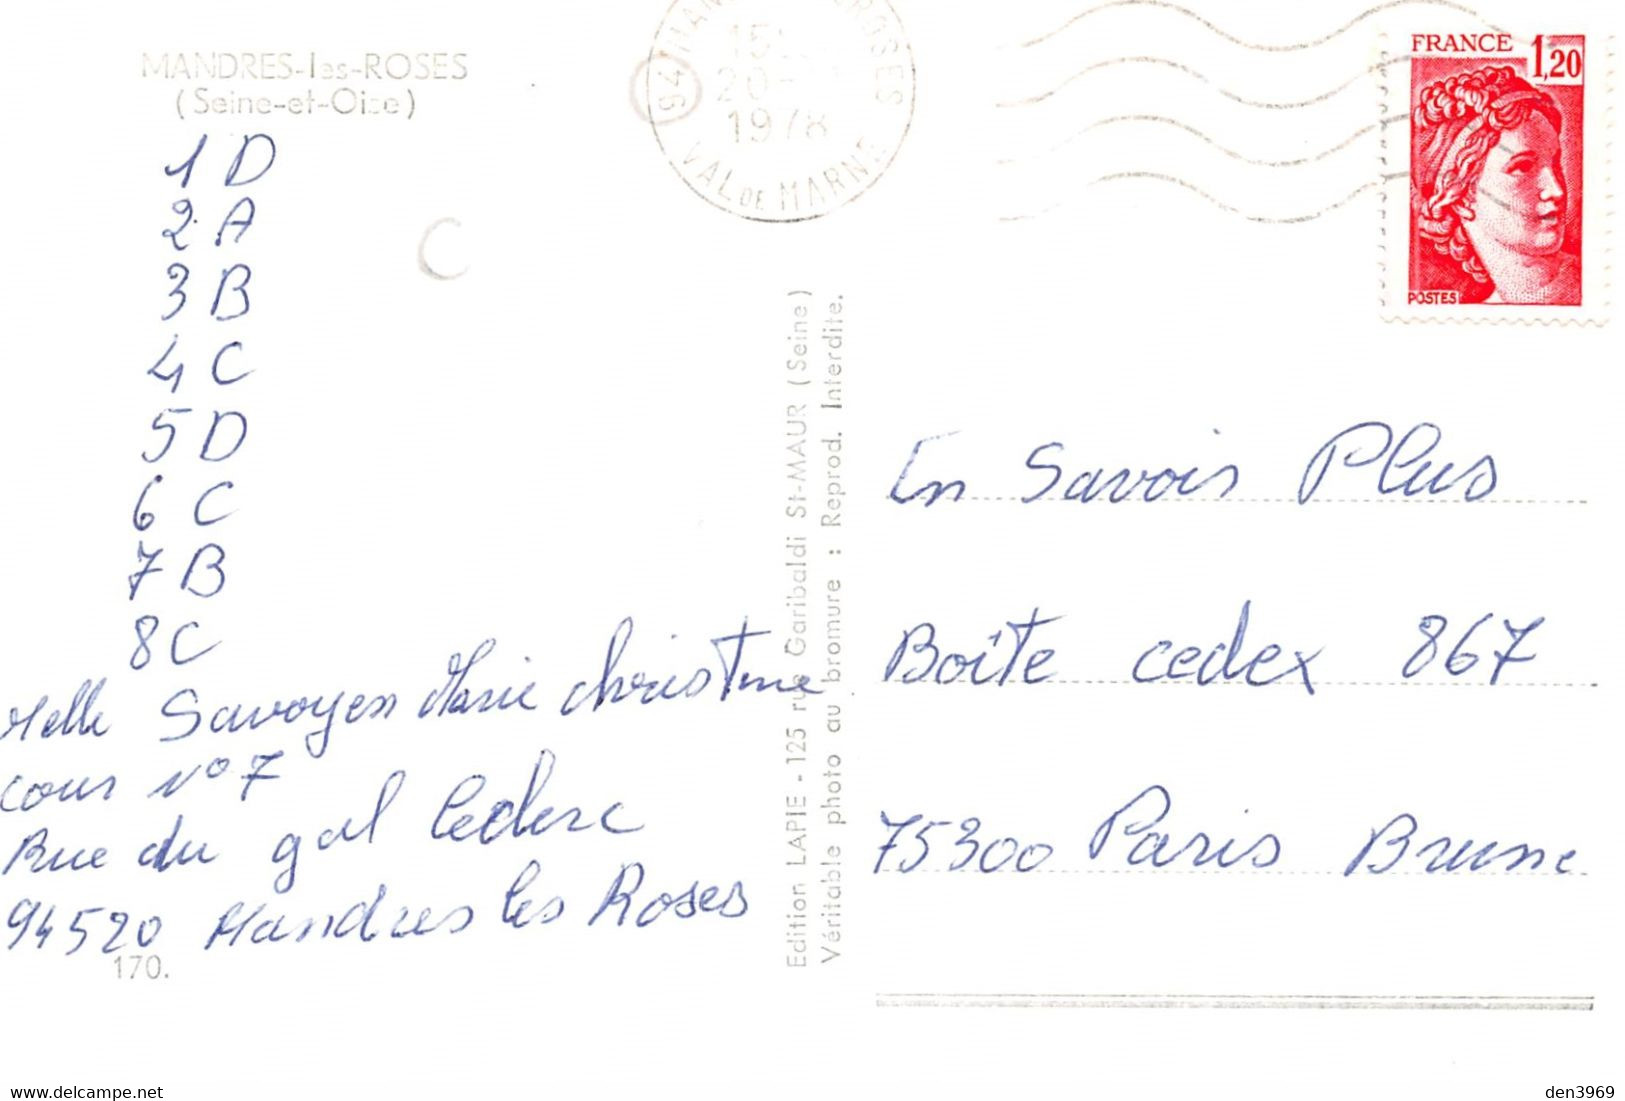 MANDRES-les-ROSES
(Seine-et-Oise)
1 D
2 A
3 B
4 C
5 D
6 C
7 B
8 C
C
Melle Savoyen Marie Christine
cour n° 7
Rue du gal Leclerc
94520 Mandres les Roses
170.
94
15
20
1978
VAL DE MARNE
FRANCE 1,20
POSTES
Edition LAPIE - 125 rue Garibaldi St-MAUR (Seine)
Véritable photo au bromure : Reprod. Interdite.
En Savoir Plus
Boîte cedex 867
75300 Paris Brune
den3969